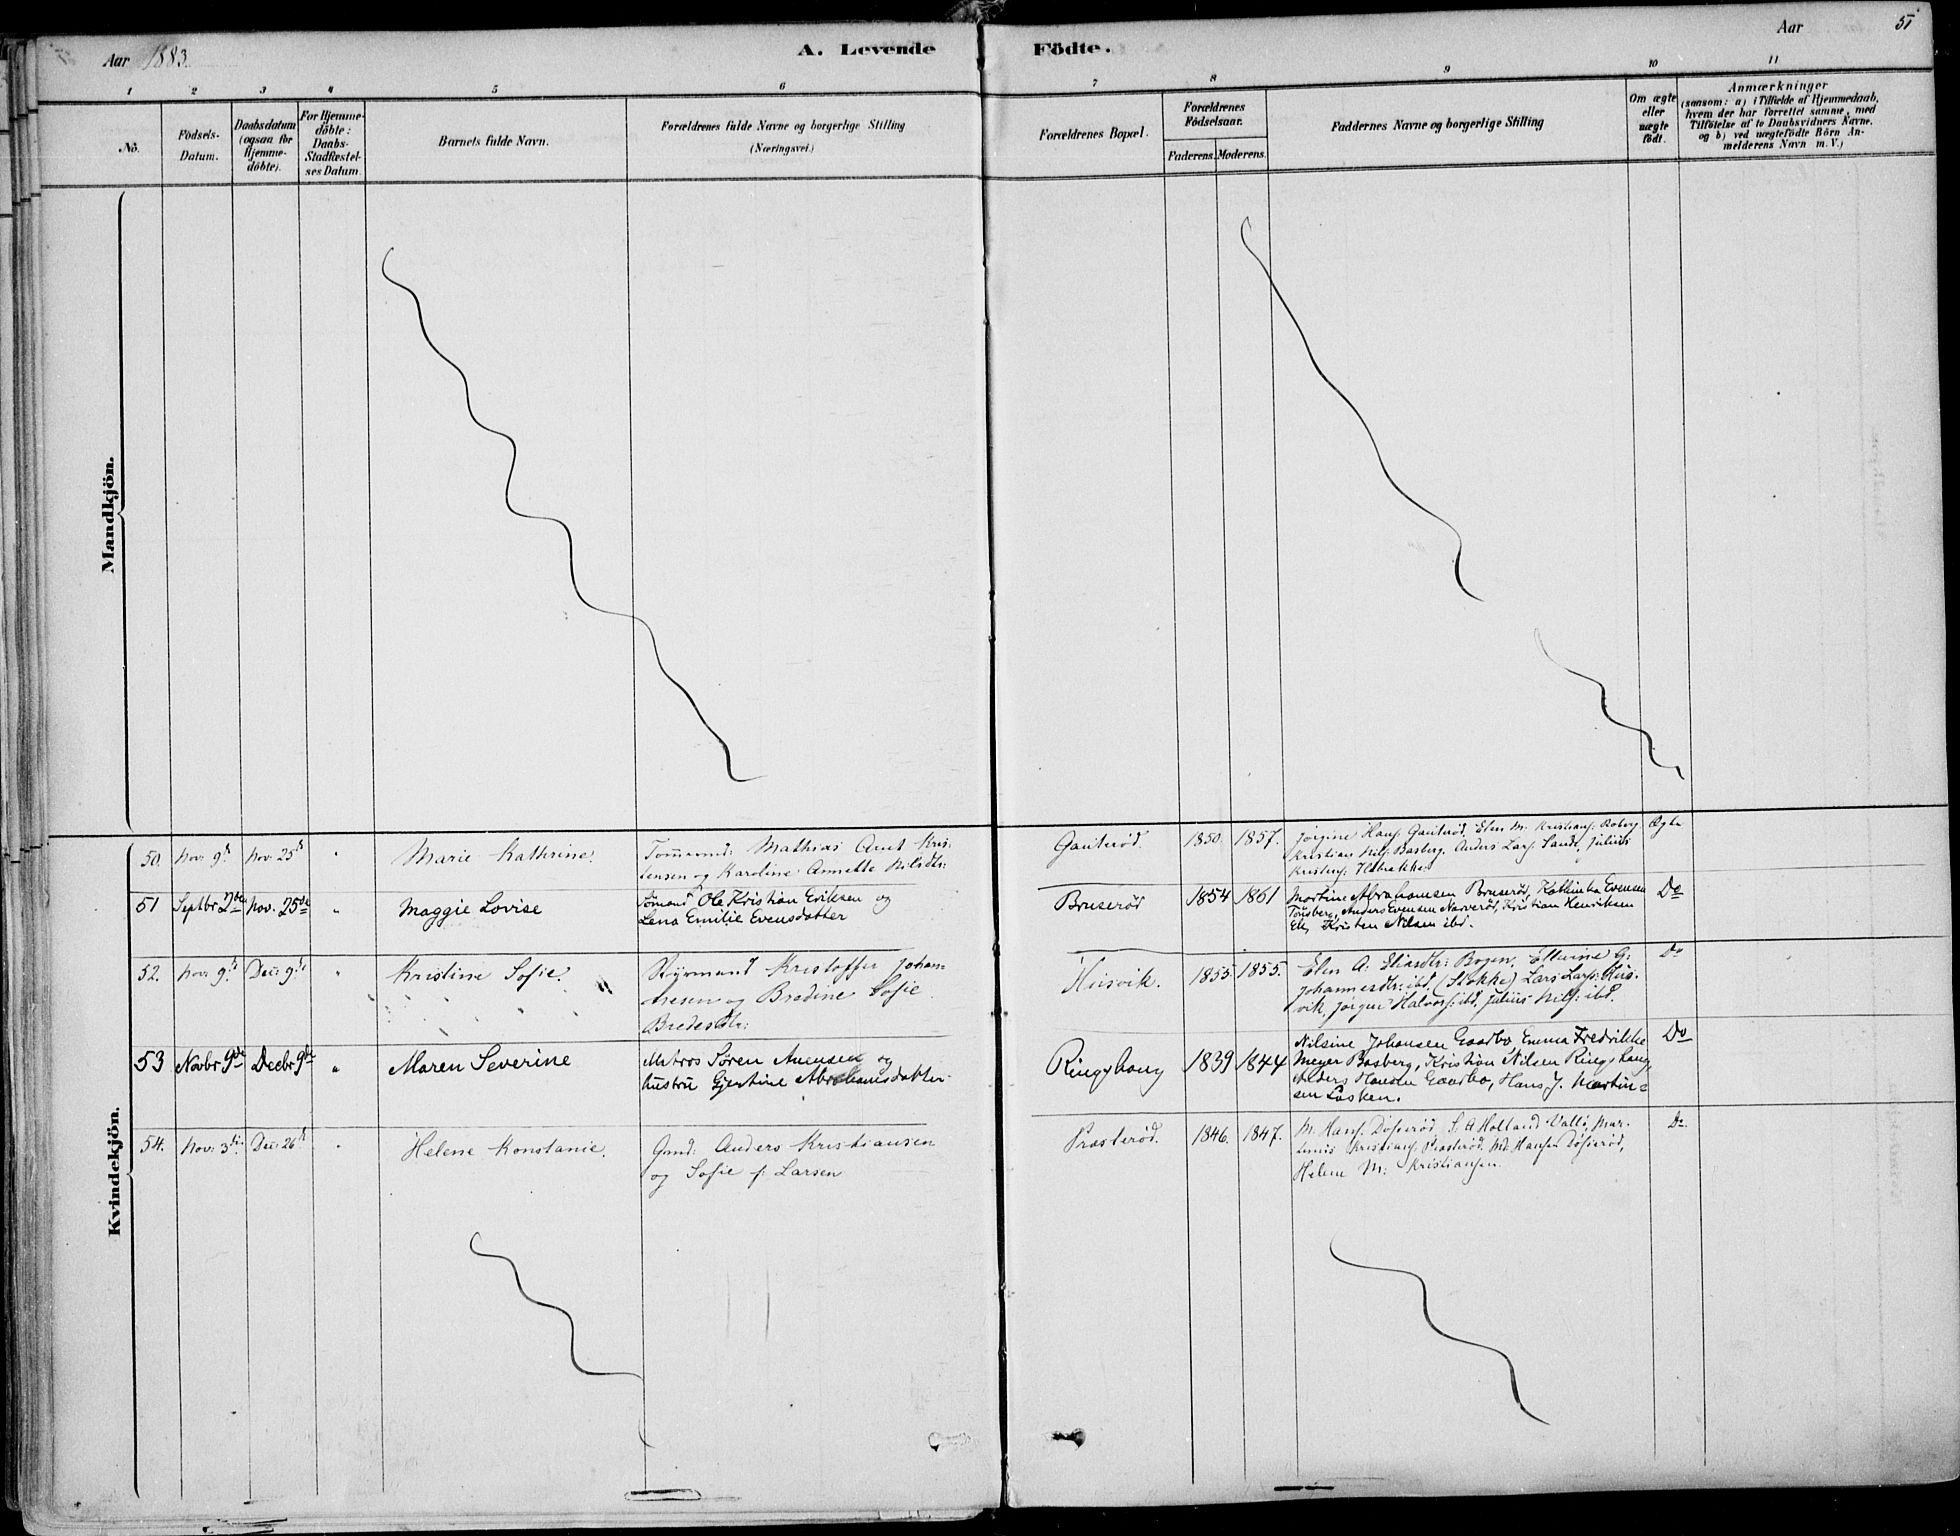 Aar 1883.
A. Levende Födte.
Aar
51
1 2 3 4 5 6 7 8 9 10 11
No.
Födsels-
Datum.
Daabsdatum
(ogsaa for
Hjemme-
döbte).
For Hjemme-
döbte:
Daabs-
Stadfæstel-
ses Datum.
Barnets fulde Navn.
Forældrenes fulde Navne og borgerlige Stilling
(Næringsvei.)
Forældrenes Bopæl.
Forældrenes
Födselsaar.
Faderens. Moderens.
Faddernes Navne og borgerlige Stilling
Om ægte
eller
uægte
födt.
Anmærkninger
(saasom: a) i Tilfælde af Hjemmedaab,
hvem der har forrettet samme, med
Tilföielse af to Daabsvidners Navne,
og b) ved uægtefödte Börn An-
melderens Navn m. V.)
Mandkjön.
Kvindekjön.
50. Nov: 9de Nov: 25de " Marie Kathrine.
Tömmermd: Mathias Arnt Kris-
tensen og Karoline Annette Nilsdtr:
Gauterød. 1850. 1857.
Jørgine Hans: Gauterød, Elen M. Kristians: Roberg
Kristian Nils: Basberg, Anders Lars: Sande, Julius
Kristens:
Ægte
51 Septbr 2den Nov. 25de " Maggie Lovise
Sömand Ole Kristian Eriksen og
Lena Emilie Evensdatter
Bruserød 1854 1861
Martine Abrahamsen Bruserød, Kathinka Evensen
Tönsberg, Anders Evensen Narverød, Kristian Henriksen
Ek, Kristen Nilsen ibd.
Do
52. Nov: 9de Dec: 9de " Kristine Sofie.
Styrmand Kristoffer Johan-
nesen og Bredine Sofie
Bredesdtr:
Husvik. 1855. 1855.
Elen A: Eliasdtr: Bogen, Ellevine G:
Johannesdtr: ibd. (Stokke) Lars Lars: Hus-
vik, Jørgen Halvors: ibd, Julius Nils: ibd.
Do
53 Novbr 9de Decbr 9de " Maren Severine
Matros Sören Auensen og
hustru Gjertine Abrahamsdatter.
Ringshaug 1839 1844
Nilsine Johansen Gaarbo Emma Fredrikke
Meyer Basberg, Kristian Nilsen Ringshaug,
Anders Hansen Gaarbo, Hans J. Martin-
sen Løsken.
Do
54. Nov: 3die Dec: 26de " Helene Konstanie.
Gmd: Anders Kristiansen
og Sofie f: Larsen
Præsterød. 1846. 1847.
M. Hans: Döfserød, S. A Holland Vallö, Mar-
tinus Kristians: Præsterød. Md. Hansen Döfserød,
Helene M: Kristiansen.
Do